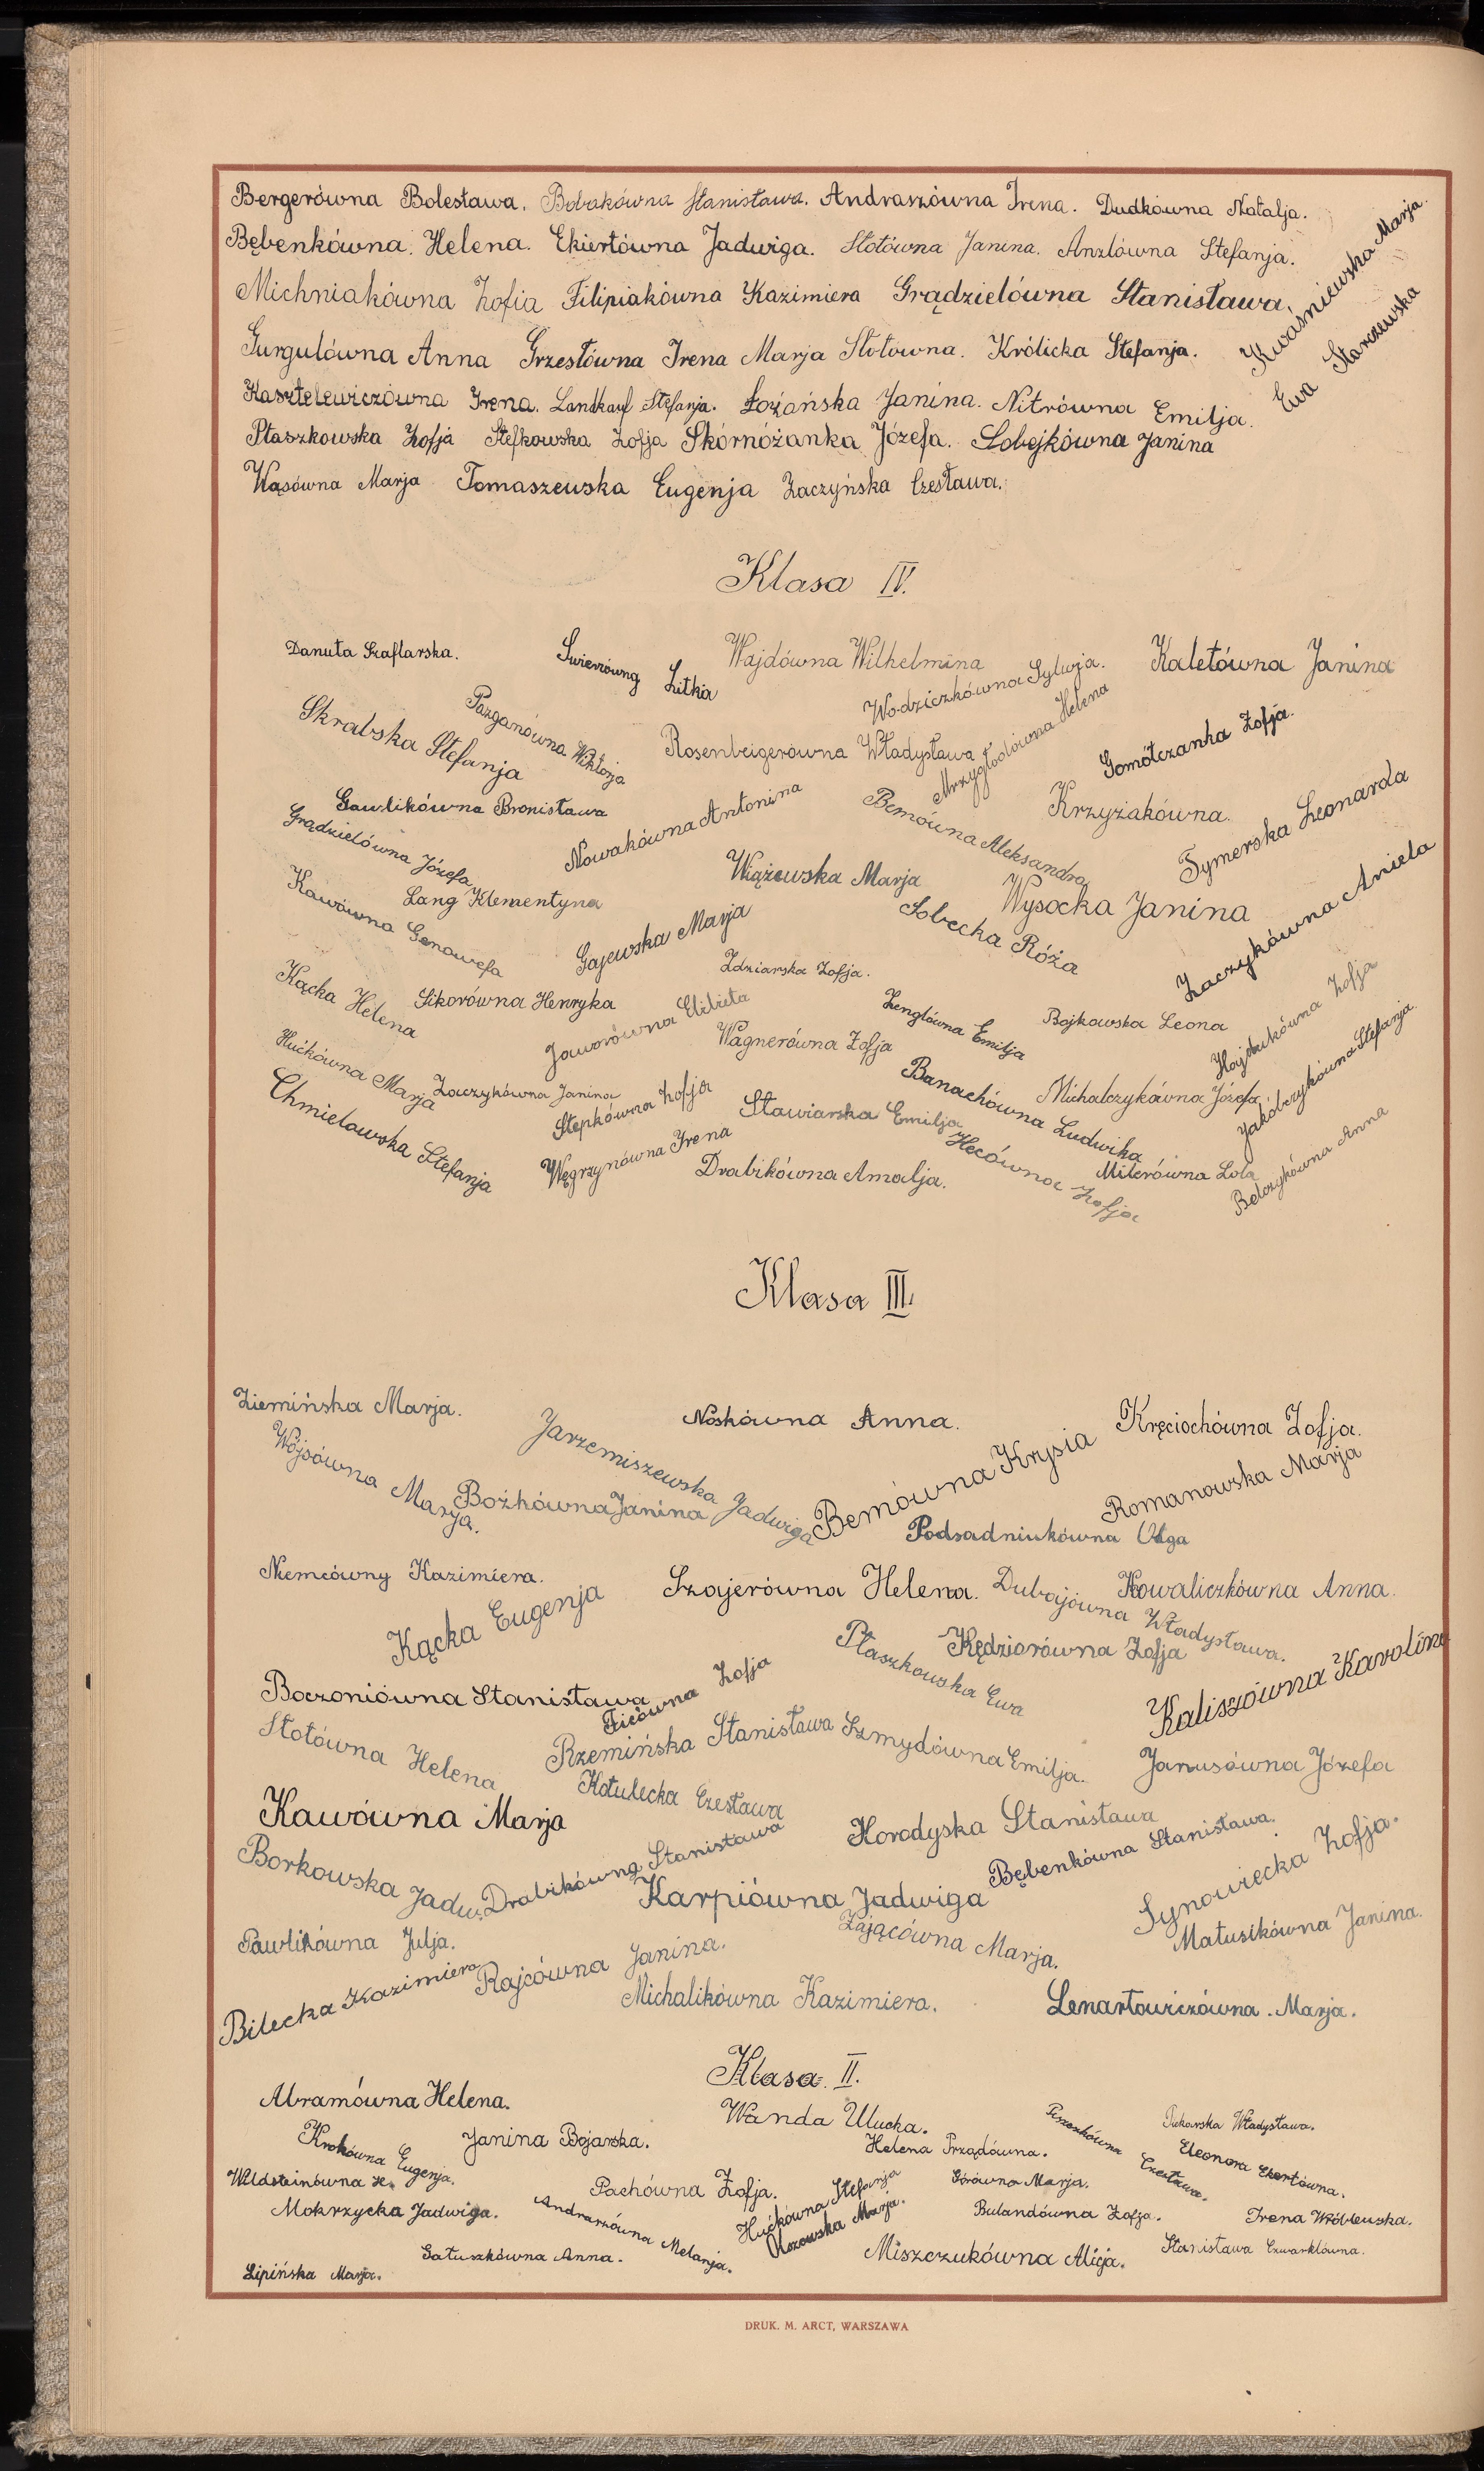 Bergerówna Bolesława. Bobakówna Stanisława. Andraszówna Irena. Dudkówna Natalja.
Bębenkówna Helena. Ekiertówna Jadwiga. Słotówna Janina. Anzlówna Stefanja.
Kwaśniewska Marja
Michniakówna Zofia Filipiakówna Kazimiera Grądzielówna Stanisława.
Ewa Starczewska
Gurgulówna Anna Grzesłówna Irena Marja Słotówna. Królicka Stefanja.
Kasztelewiczówna Irena. Landkauf Stefanja. Łożańska Janina. Nitrówna Emilja.
Ptaszkowska Zofja Stefkowska Zofja Skórnóżanka Józefa. Sobejkówna Janina
Wąsówna Marja Tomaszewska Eugenja Zaczyńska Czesława.
Klasa IV.
Danuta Szaflarska.
Litka
Wajdówna Wilhelmina
Wodziczkówna Sylwja.
Kaletówna Janina
Skrabska Stefanja
Pazganówna Wiktorja
Rosenbeigerówna Władysława
Mrzygłodówna Helena
Gomółczanka Zofja.
Gawlikówna Bronisława
Nowakówna Antonina
Bemówna Aleksandra
Krzyżakówna.
Tymerska Leonarda
Grądzielówna Józefa
Lang Klementyna
Wiążewska Marja
Wysocka Janina
Kawówna Genowefa
Gajewska Marja
Sobecka Róża
Zaczykówna Aniela
Zdziarska Zofja.
Kącka Helena
Sikorówna Henryka
Jaworówna Elżbieta
Wagnerówna Zofja
Zenglówna Emilja
Bojkowska Leona
Hajdukówna Zofja
Hućkówna Marja
Zaczykówna Janina
Stepkówna Zofja
Stawiarska Emilja
Banachówna Ludwika
Michalczykówna Józefa
Jakóbczykówna Stefanja.
Chmielowska Stefanja
Węgrzynówna Irena
Drabikówna Amalja.
Hecówna Zofja
Milerówna Lola
Bełczykówna Anna
Klasa III.
Ziemińska Marja.
Jarzemiszewska Jadwiga
Noskówna Anna.
Bemówna Krysia
Kręciochówna Zofja.
Wójsówna Marja.
Bożkówna Janina
Podsadniukówna Olga
Romanowska Marja
Niemcówny Kazimiera.
Kącka Eugenja
Szajerówna Helena.
Dubajówna Władysława.
Kowaliczkówna Anna.
Ptaszkowska Ewa
Kędziorówna Zofja
Kaliszówna Karolina
Boczoniówna Stanisława
Ficówna Zofja
Słotówna Helena
Rzemińska Stanisława
Szmydówna Emilja.
Janusówna Józefa
Kotulecka Czesława
Kawówna Marja
Horodyska Stanisława
Borkowska Jadw.
Drabikówna Stanisława
Karpiówna Jadwiga
Bębenkówna Stanisława.
Synowiecka Zofja.
Pawlikówna Julja.
Rajcówna Janina.
Zającówna Marja.
Matusikówna Janina.
Bilecka Kazimiera
Michalikówna Kazimiera.
Lenartowiczówna. Marja.
Klasa. II.
Abramówna Helena.
Wanda Ulucka.
Czesława.
Władysława.
Krokówna Eugenja.
Janina Bojarska.
Helena Prządówna.
Eleonora Ekertówna.
Wildsteinówna H.
Pachówna Zofja.
Hućkówna Stefanja
Górówna Marja.
Mokrzycka Jadwiga.
Andraszówna Melanja.
Olszowska Marja.
Bulandówna Zofja.
Irena Wróblewska.
Gałuszkówna Anna.
Miszczukówna Alicja.
Stanisława Czwarklówna.
Lipińska Marja.
DRUK. M. ARCT, WARSZAWA